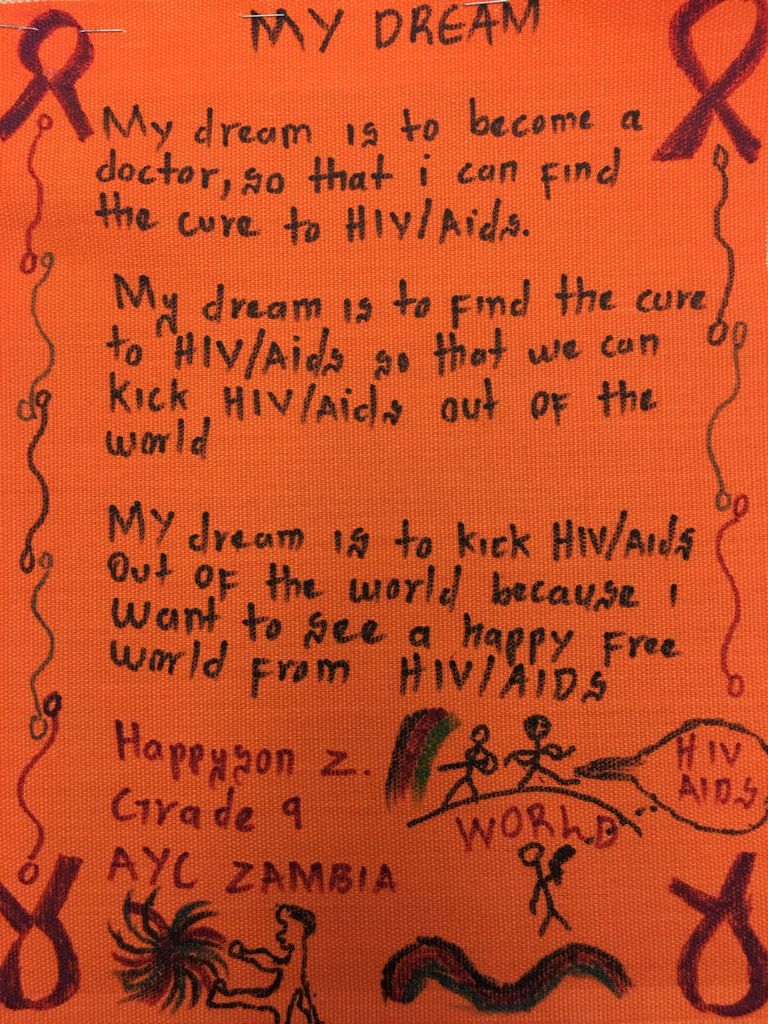 MY DREAM
My dream is to become a
doctor, so that i can find
the cure to HIV/Aids.
My dream is to find the cure
to HIV/Aids so that we can
kick HIV/Aids out of the
world
MY dream is to kick HIV/AIDS
out of the world because i
want to see a happy free
world from HIV/AIDS
Happyson Z.
Grade 9
AYC ZAMBIA
HIV
AIDS
WORLD